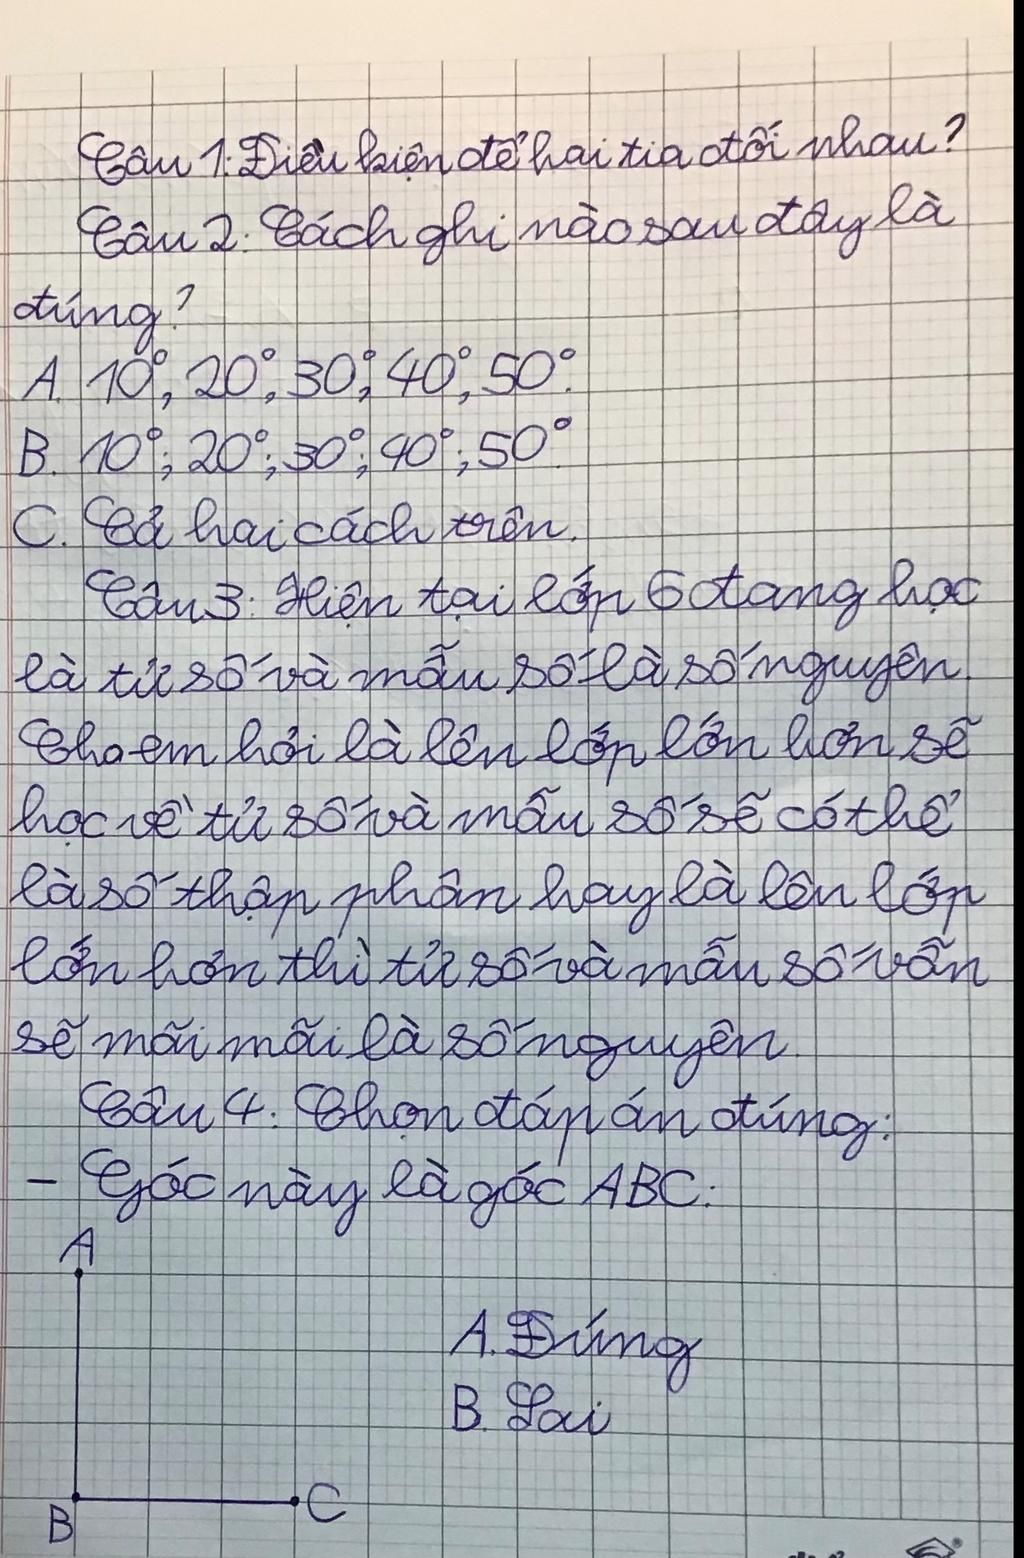 Câu 1: Điều kiện để hai tia đối nhau?
Câu 2: Cách ghi nào sau đây là
đúng?
A. 10°, 20°, 30°, 40°, 50°.
B. 10°; 20°; 30°; 40°; 50°.
C. Cả hai cách trên.
Câu 3: Hiện tại lớp 6 đang học
là tử số và mẫu số là số nguyên.
Cho em hỏi là lên lớp lớn hơn sẽ
học về tử số và mẫu số sẽ có thể
là số thập phân hay là lên lớp
lớn hơn thì tử số và mẫu số vẫn
sẽ mãi mãi là số nguyên.
Câu 4: Chọn đáp án đúng:
- Góc này là góc ABC:
A
A. Đúng
B. Sai
B
C